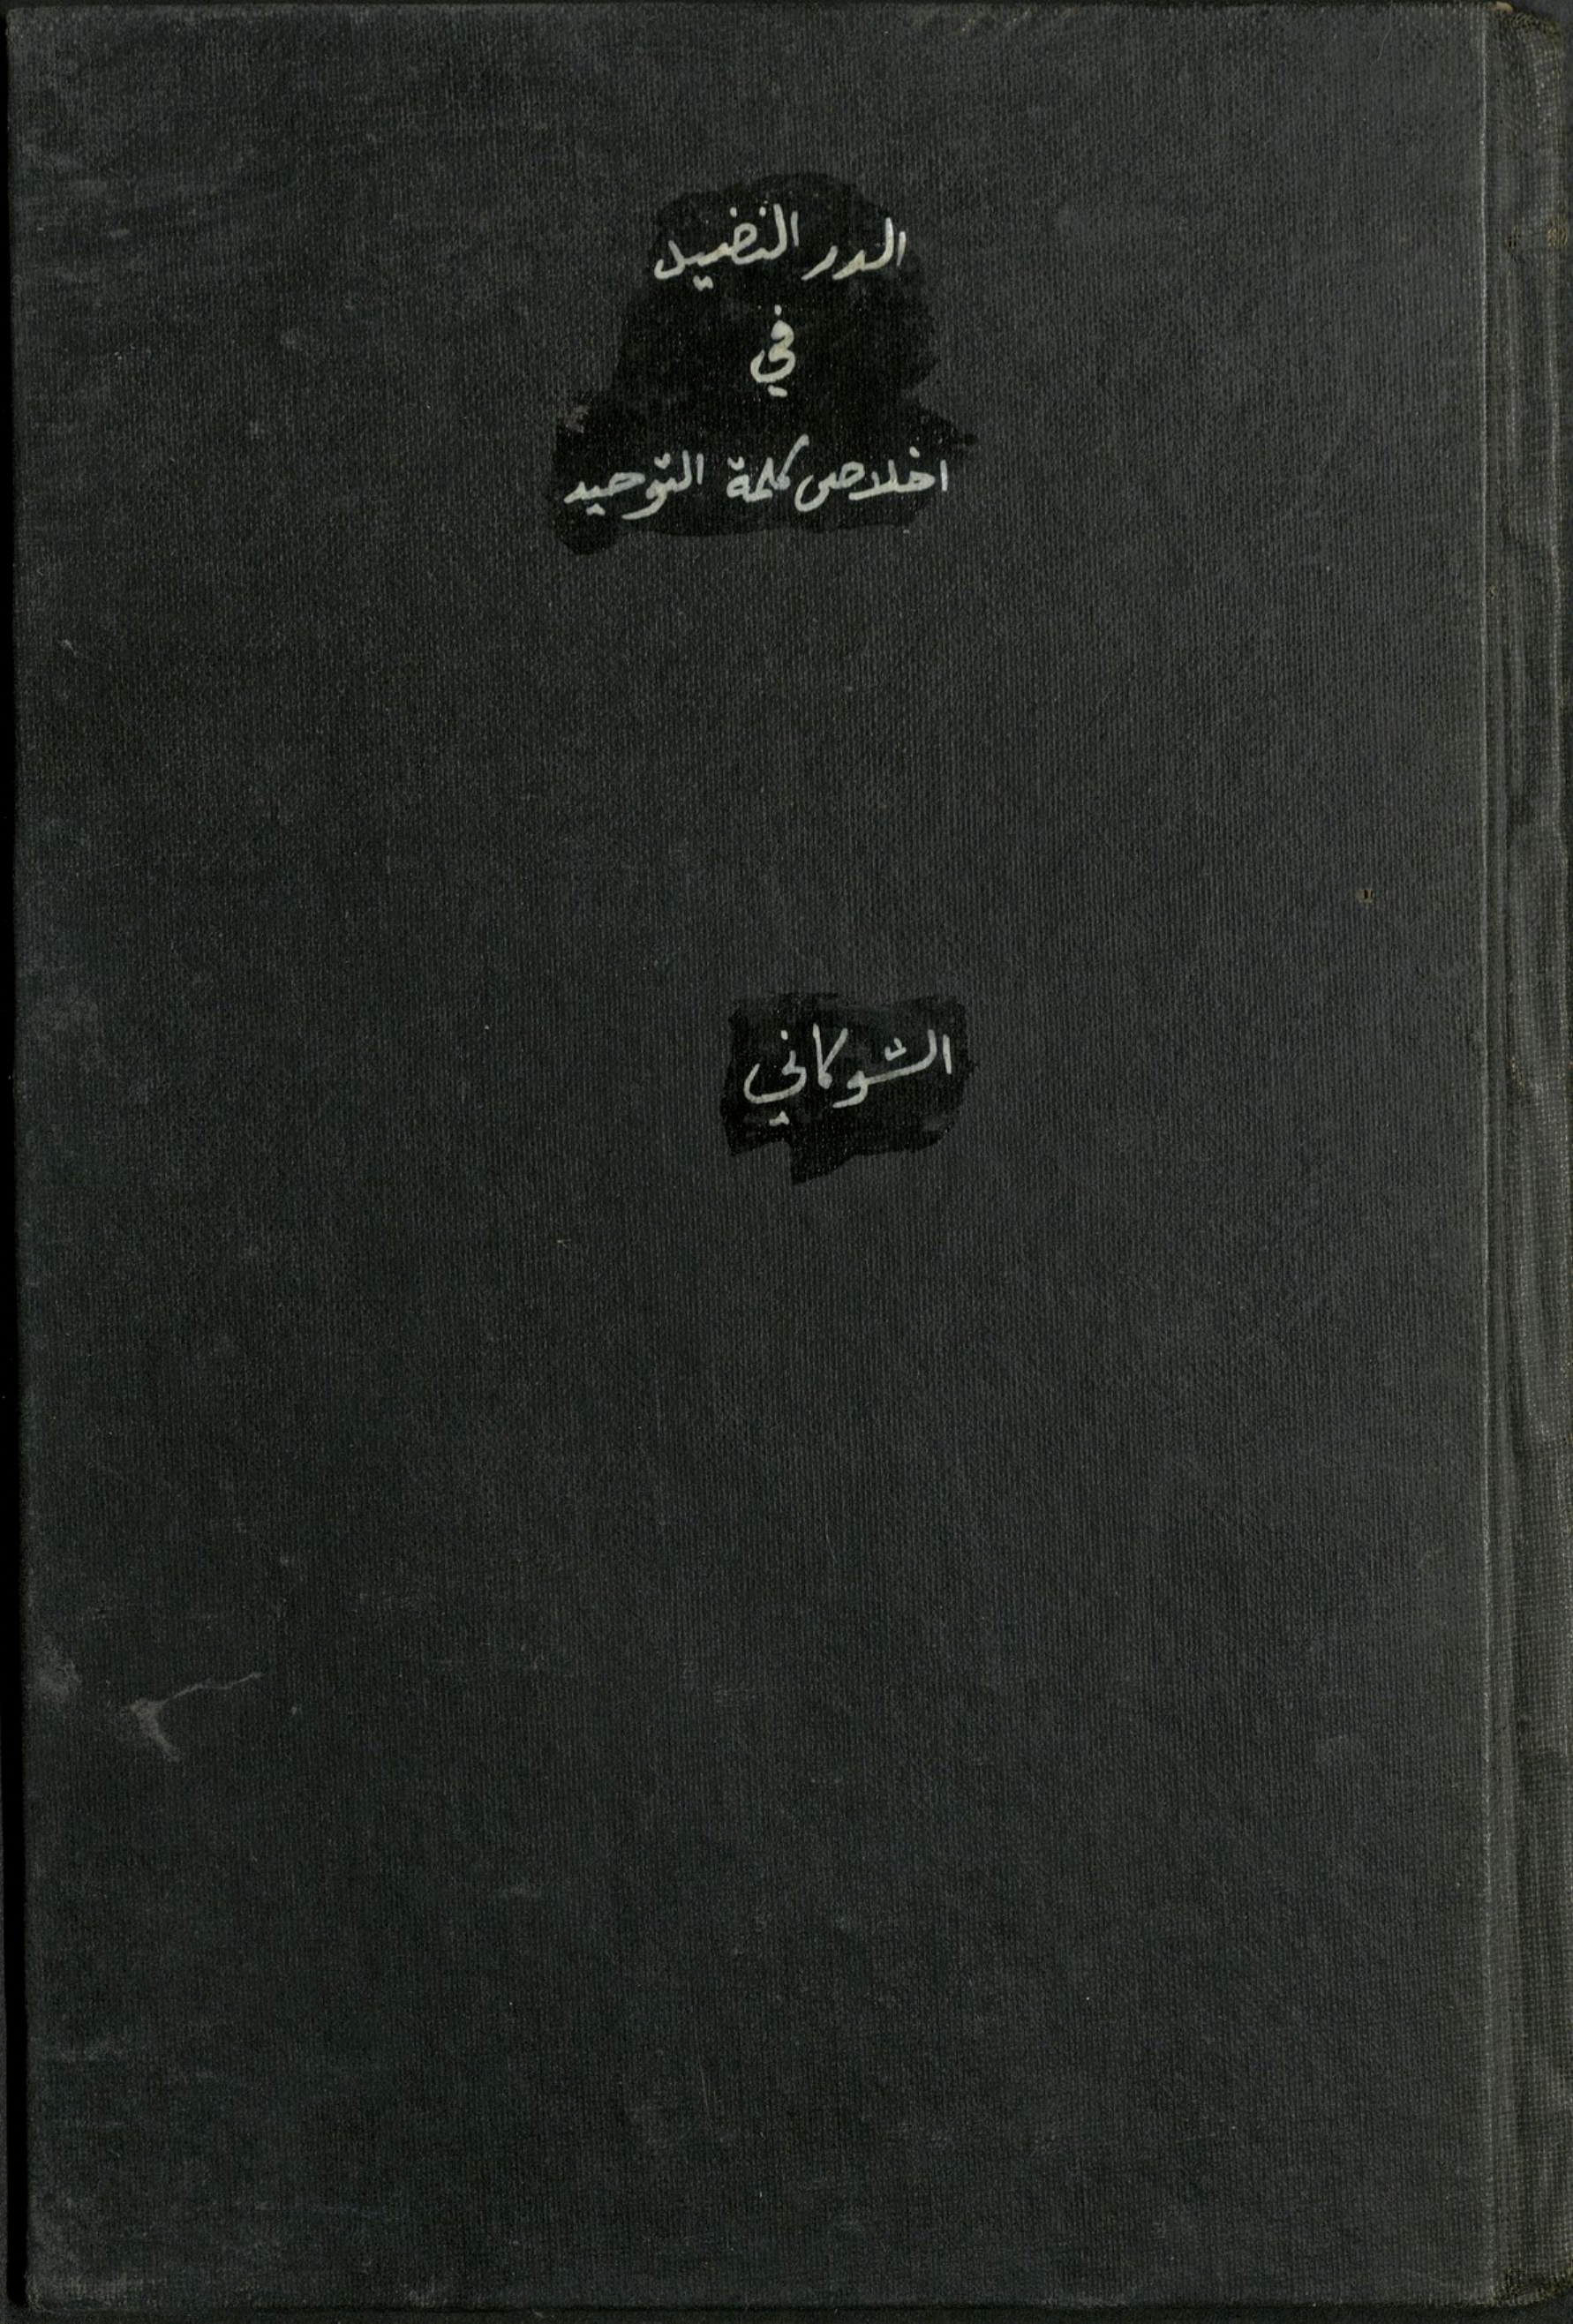 الدر النضيد
في
اخلاص كلمة التّوحيد
الشّوكاني